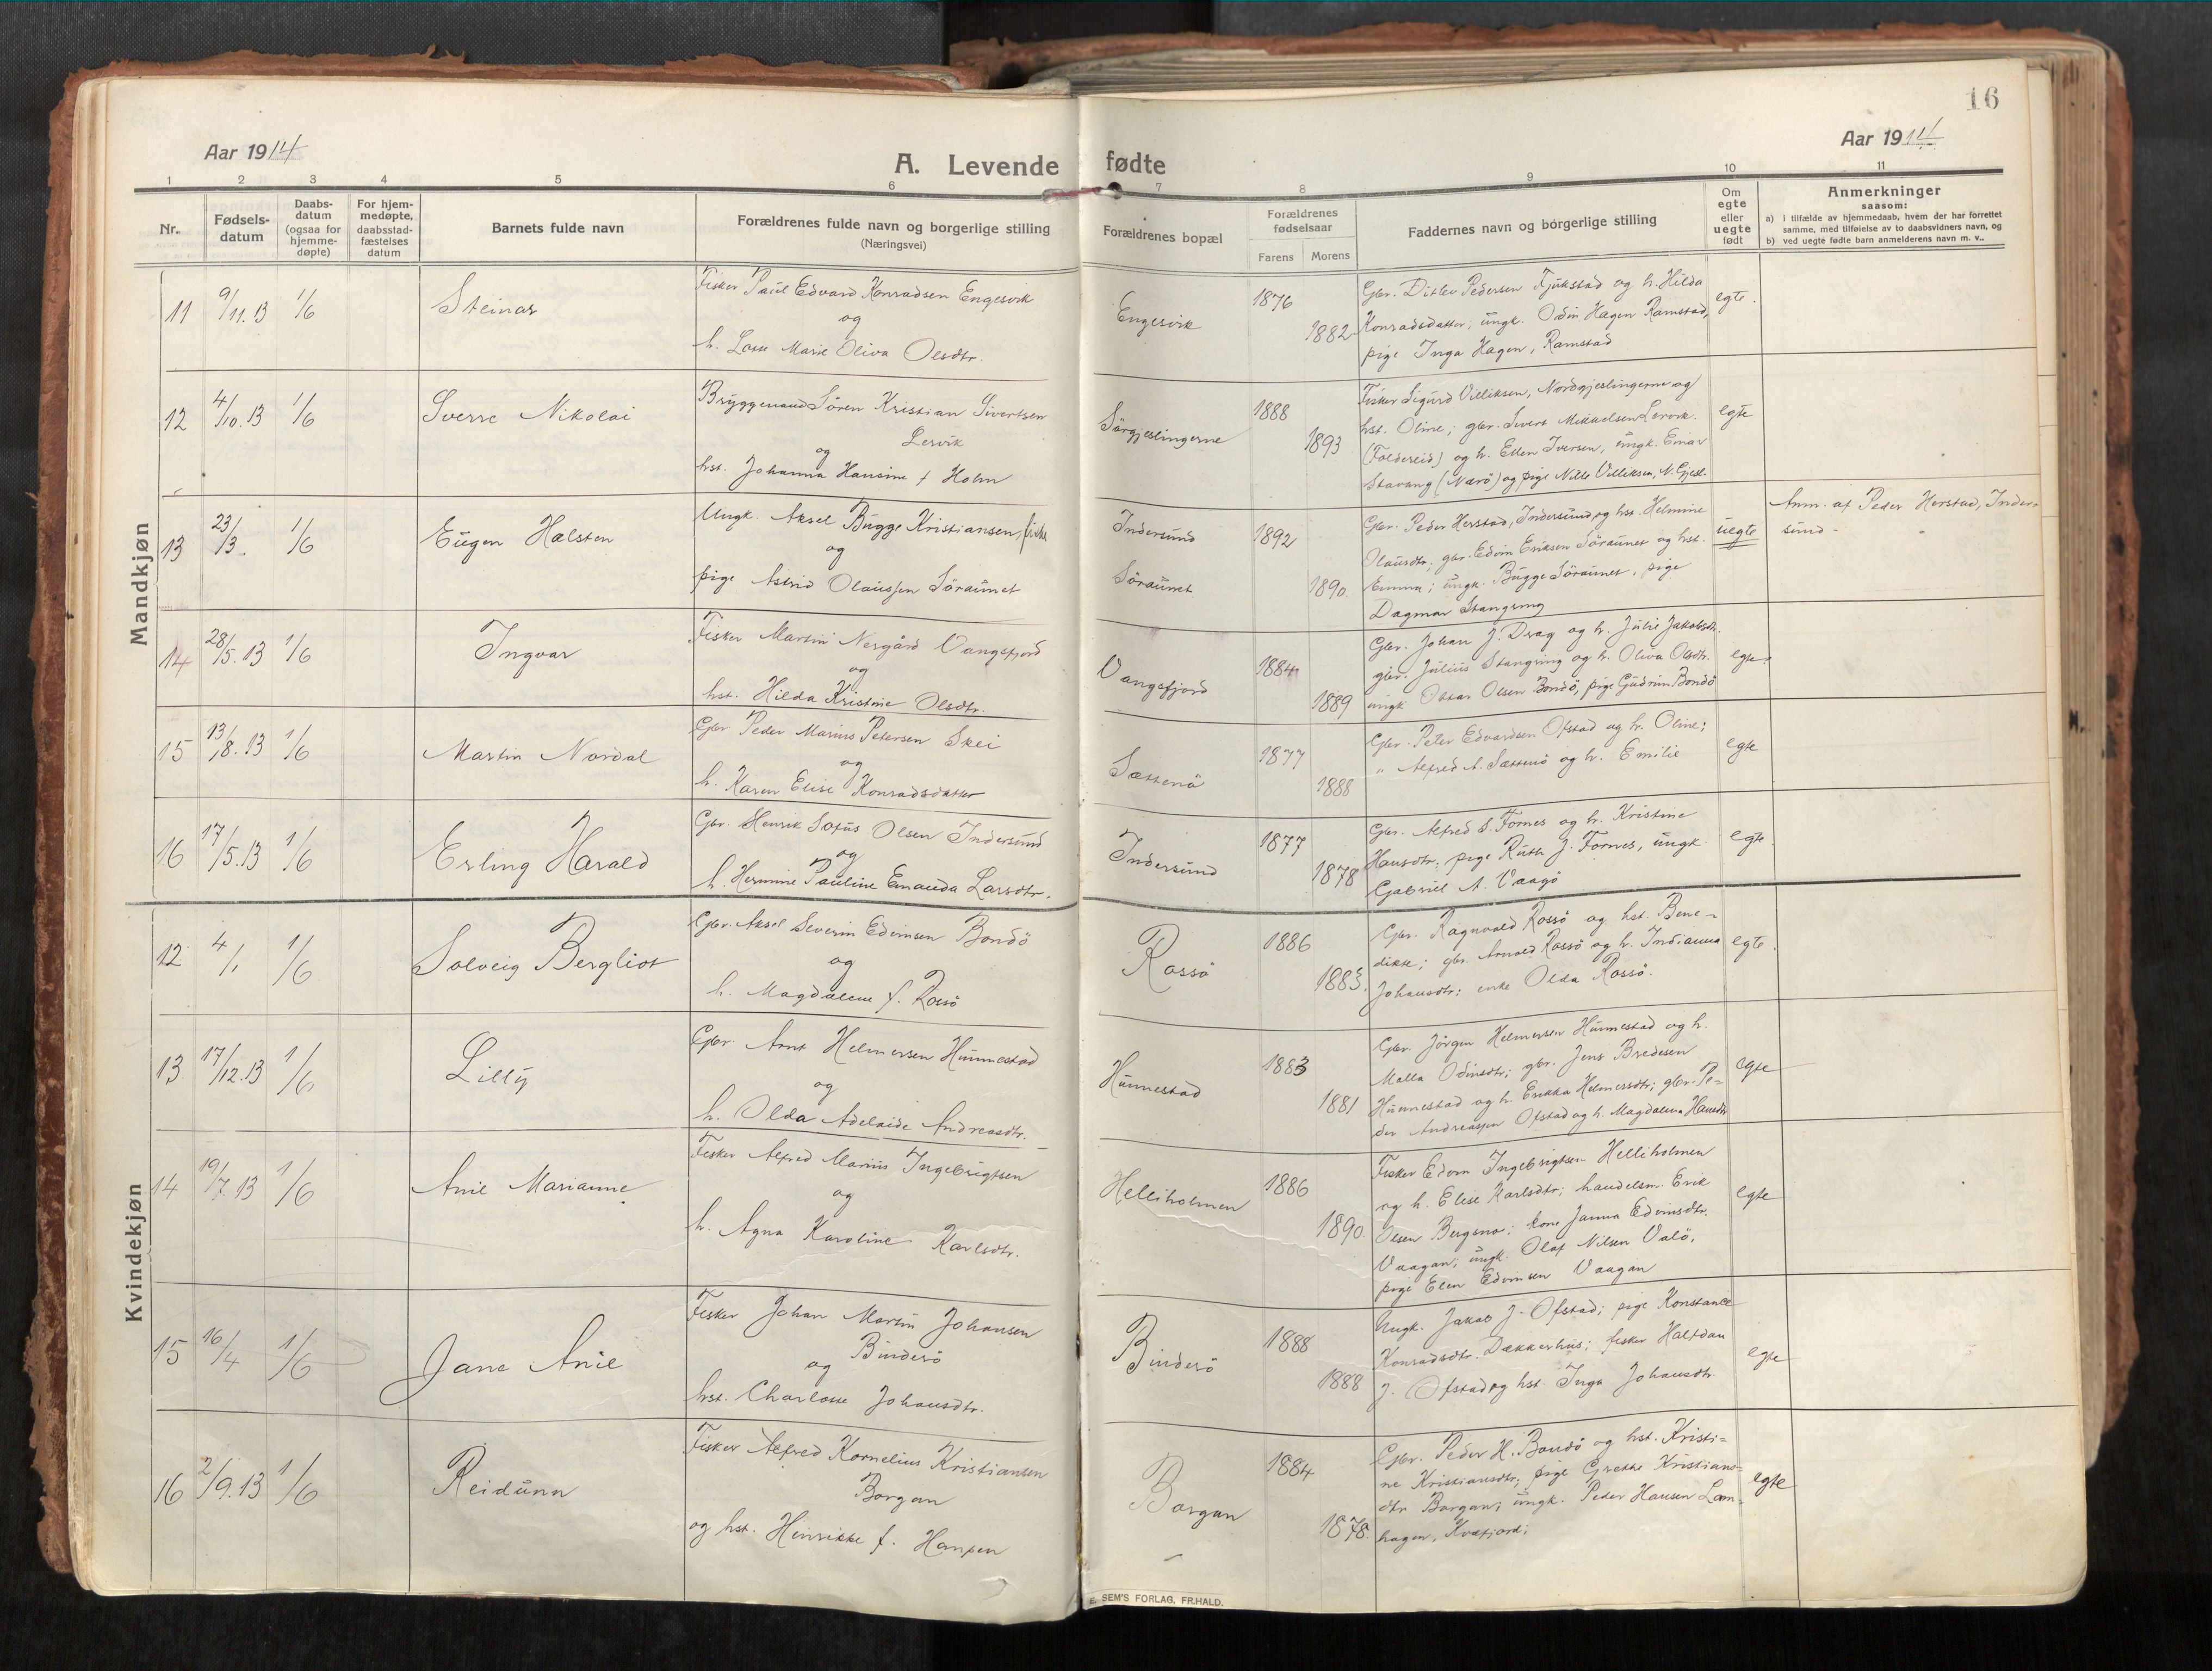 16
Aar 1914
A. Levende fødte
Aar 1914
1 2 3 4 5 6 7 8 9 10 11
Nr.
Fødsels-
datum
Daabs-
datum
(ogsaa for
hjemme-
døpte)
For hjem-
medøpte,
daabsstad-
fæstelses
datum
Barnets fulde navn
Forældrenes fulde navn og borgerlige stilling
(Næringsvei)
Forældrenes bopæl
Forældrenes
fødselsaar
Farens Morens
Faddernes navn og borgerlige stilling
Om
egte
eller
uegte
født
Anmerkninger
saasom:
a) i tilfælde av hjemmedaab, hvem der har forrettet
samme, med tilføielse av to daabsvidners navn, og
b) ved uegte fødte barn anmelderens navn m. v..
Mandkjøn
11 9/11.13 1/6 Steinar
Fisker Paul Edvard Konradsen Engesvik
og
h. Lasse Marie Oliva Olsdtr.
Engesvik 1876 1882
Gbr. Ditlev Pedersen Fjukstad og h. Hilda
Konradsdatter; ungk. Odin Hagen Ramstad,
pige Inga Hagen, Ramstad
egte.
12 4/10.13 1/6 Sverre Nikolai
Bryggemand Søren Kristian Sivertsen
Lervik
og
hst. Johanna Hansine f Holm
Sørgjeslingerne 1888 1893
Fisker Sigurd Villiksen, Nordgjeslingerne og
hst. Oline; gbr. Sivert Mikkaelsen Lervik.
(Foldereid) og h. Ellen Iversen, ungk. Einar
Stavang (Nærö) og pige Nille Villiksen, N. Gjesl.
egte
13 23/3. 1/6 Eugen Halsten
Ungk. Aksel Bugge Kristiansen, fisker
og
pige Astrid Olaussen Söraunet
Indersund
Söraunet 1892 1890
Gbr. Peder Herstad, Indersund og hst. Helmine
Olausdtr; gbr. Edvin Eriksen Söraunet og hst.
Emma; ungk. Bugge Söraunet, pige
Dagmar Stangring
uegte
Anm. af Peder Herstad, Inder-
sund -
14 28/5.13 1/6 Ingvar
Fisker Martin Nergård Vangsfjord
og
hst. Hilda Kristine Olsdtr.
Vangsfjord 1884 1889
Gbr. Johan J. Drag og h. Julie Jakobsdtr.
gbr. Julius Stangring og h. Oliva Olsdtr.
ungk Oskar Olsen Bondö, pige Gudrun Bondö
egte.
15 13/8.13 1/6 Martin Nordal
Gbr Peder Marius Petersen Skei
og
h. Karen Elise Konradsdatter
Sættenö 1877 1888
Gbr. Peter Edvardsen Ofstad og h. Oline;
" Alfred A. Sættenö og h. Emilie
egte
16 17/5.13 1/6 Erling Harald
Gbr. Henrik Sofus Olsen Indersund
og
h. Hermine Pauline Emanda Larsdtr.
Indersund 1877 1878
Gbr. Alfred S. Fornes og h. Kristine
Hansdtr; pige Ruth J. Fornes, ungk
Gabriel A. Vaagö
egte
Kvindekjøn
12 4/1 1/6 Solveig Bergliot
Gbr. Aksel Severin Edvinsen Bondö
og
h. Magdalene f. Rossö
Rossö 1886 1883.
Gbr. Ragnvald Rossö og hst. Bene-
dikte; gbr. Arnold Rossö og h. Indianna
Johansdtr; enke Olda Rossö.
egte.
13 17/12.13 1/6 Lilly
Gbr. Arnt Helmersen Hunnestad
og
h. Olda Adelaide Andreasdtr.
Hunnestad 1883 1881
Gbr. Jörgen Helmersen Hunnestad og h.
Malla Odinsdtr; gbr. Jens Bredesen
Hunnestad og h. Erikka Helmersdtr; gbr. Pe-
der Andreassen Ofstad og h. Magdalena Hansdtr
egte
14 19/7.13 1/6 Anie Marianne
Fisker Alfred Marius Ingebrigtsen
og
h. Agna Karoline Karlsdtr.
Helliholmen 1886 1890.
Fisker Edvin Ingebrigtsen Helliholmen
og h. Elise Karlsdtr; handelsm. Erik
Olsen Bergsno: kone Janna Edvinsdtr.
Vaagan; ungk. Olaf Nilsen Valö,
pige Elen Edvinsen Vaagan
egte
15 16/4 1/6 Jane Anie
Fisker Johan Martin Johansen
Bindersö
og
hst. Charlotte Johansdtr.
Bindersö 1888 1888
Ungk. Jakob J. Ofstad; pige Konstance
Konradsdtr. Dækkerhus; fisker Halfdan
J. Ofstad og hst. Inga Johansdtr.
egte
16 2/9.13 1/6 Reidunn
Fisker Alfred Kornelius Kristiansen
Borgan
og hst. Hinrikke f. Hansen
Borgan 1884 1878.
Gbr. Peder H. Bondö og hst. Kristi-
ne Kristiansdtr; pige Grethe Kristians-
dtr Borgan; ungk. Peder Hansen Lam-
hagen, Kvæfjord;
egte
E. SEM'S FORLAG, FR.HALD.